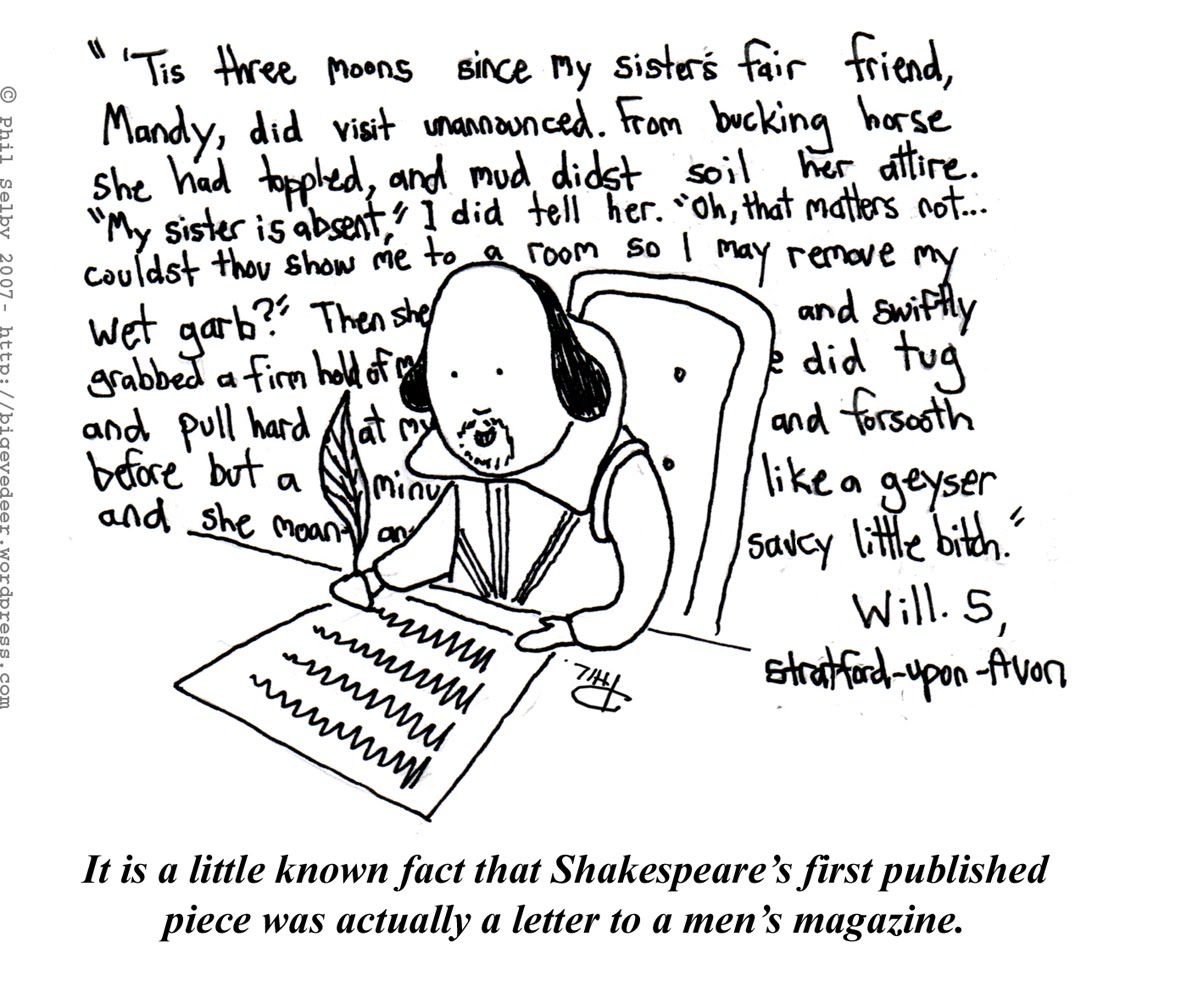 " 'Tis three moons since my sister's fair friend,
Mandy, did visit unannounced. From bucking horse
she had toppled, and mud didst soil her attire.
"My sister is absent," I did tell her. "Oh, that matters not...
couldst thou show me to a room so I may remove my
wet garb?" Then she and swiftly
grabbed a firm hold of did tug
and pull hard at my and forsooth
before but a minu like a geyser
and she moan an saucy little bitch."
Will. S,
Stratford-upon-Avon
Phil
It is a little known fact that Shakespeare's first published
piece was actually a letter to a men's magazine.
© Phil Selby 2007- http://bigeyedeer.wordpress.com